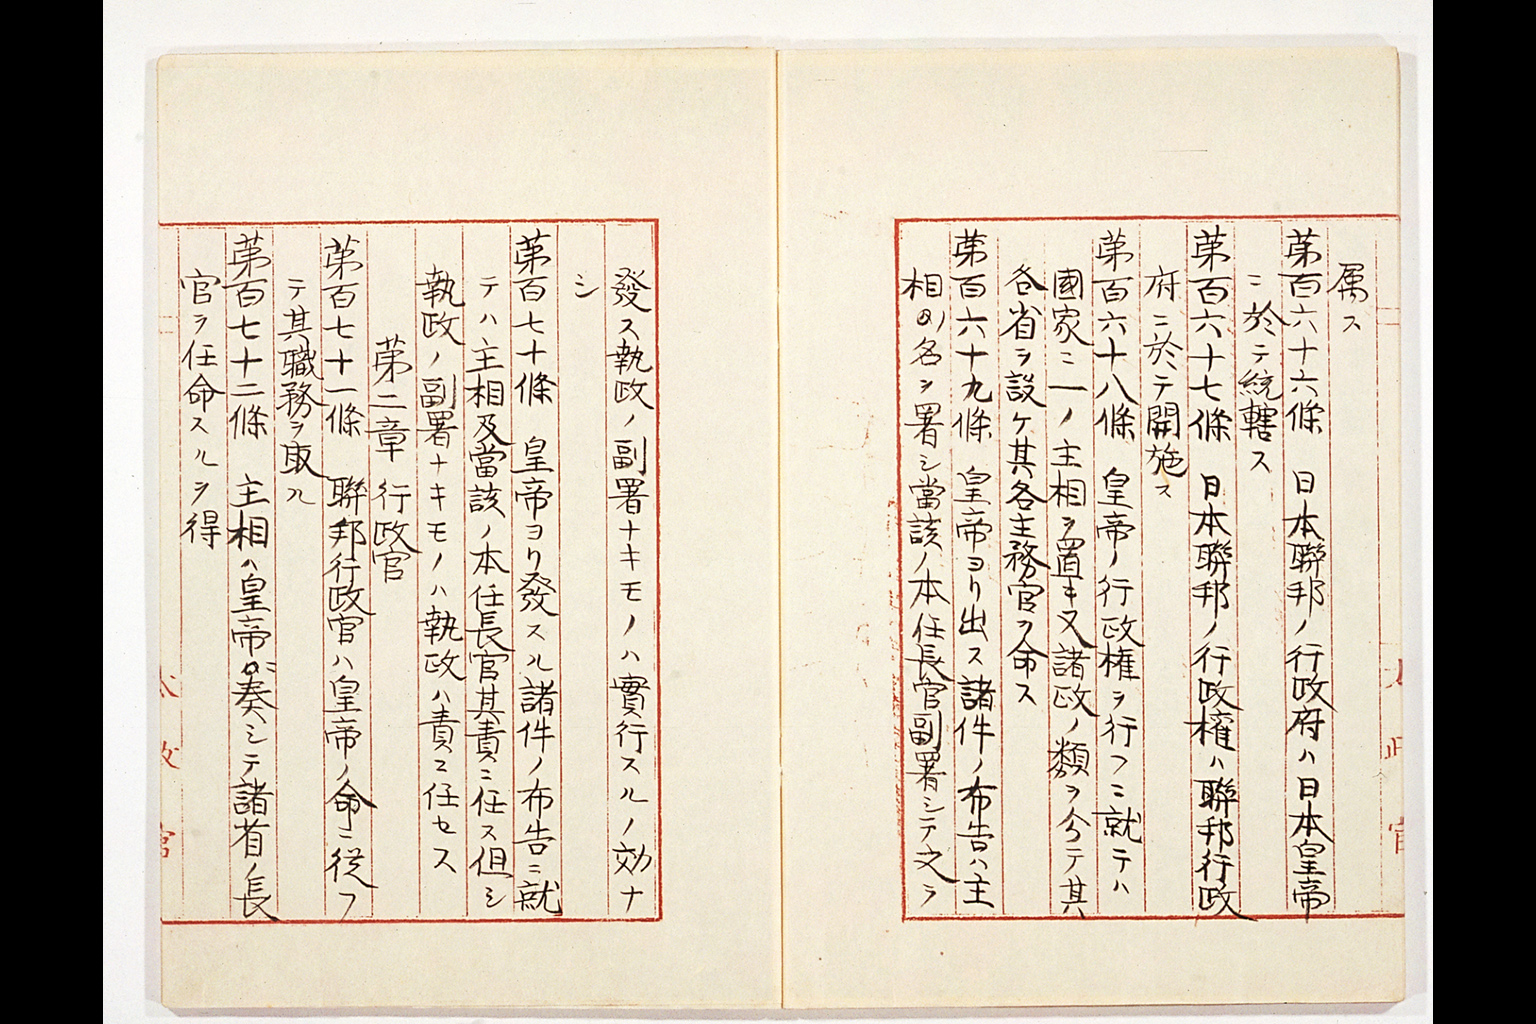 属ス
第百六十六條 日本聯邦ノ行政府ハ日本皇帝
ニ於テ統轄ス
第百六十七條 日本聯邦ノ行政權ハ聯邦行政
府ニ於テ開施ス
第百六十八條 皇帝ノ行政權ヲ行フニ就テハ
國家ニ一ノ主相ヲ置キ又諸政ノ類ヲ分テ其
各省ヲ設ケ其各主務官ヲ命ス
第百六十九條 皇帝ヨリ出ス諸件ノ布告ハ主
相名ヲ署シ當該ノ本任長官副署シテ之ヲ
發ス執政ノ副署ナキモノハ實行スルノ効ナ
シ
第百七十條 皇帝ヨリ發スル諸件ノ布告ニ就
テハ主相及當該ノ本任長官其責ニ任ス但シ
執政ノ副署ナキモノハ執政ハ責ニ任セス
第二章 行政官
第百七十一條 聯邦行政官ハ皇帝ノ命ニ從フ
テ其職務ヲ取ル
第百七十二條 主相ハ皇帝ニ奏シテ諸省ノ長
官ヲ任命スルヲ得
太政官